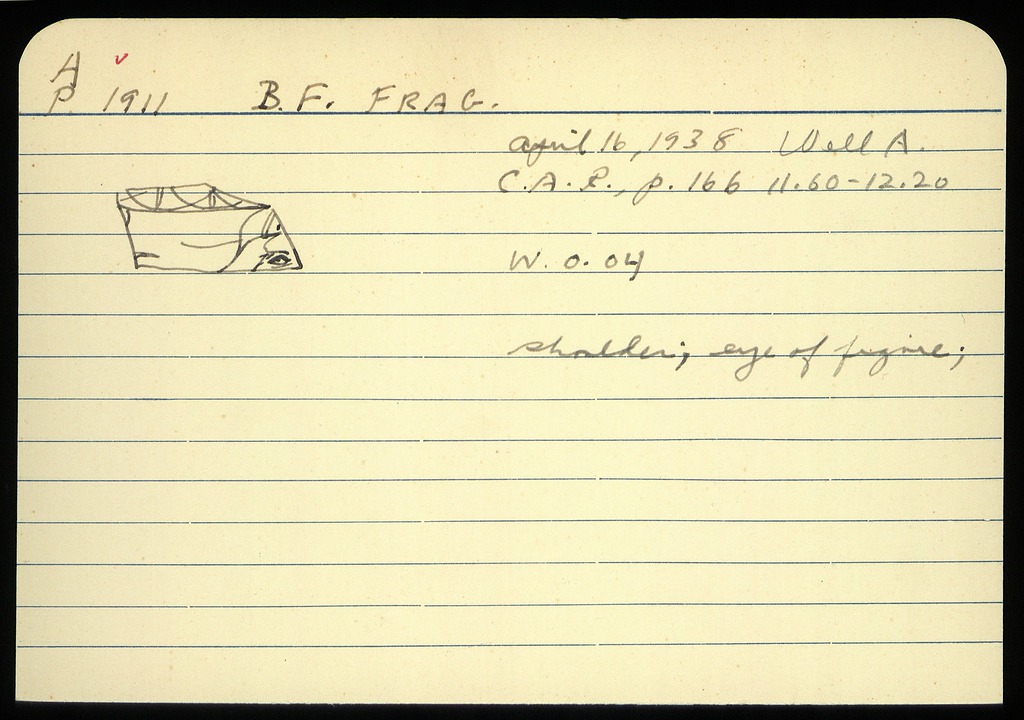 A
P 1911 B.F. FRAG.
April 16, 1938 Well A.
C.A.R., p. 166 11.60-12.20
W. 0.04
shoulder; eye of figure;